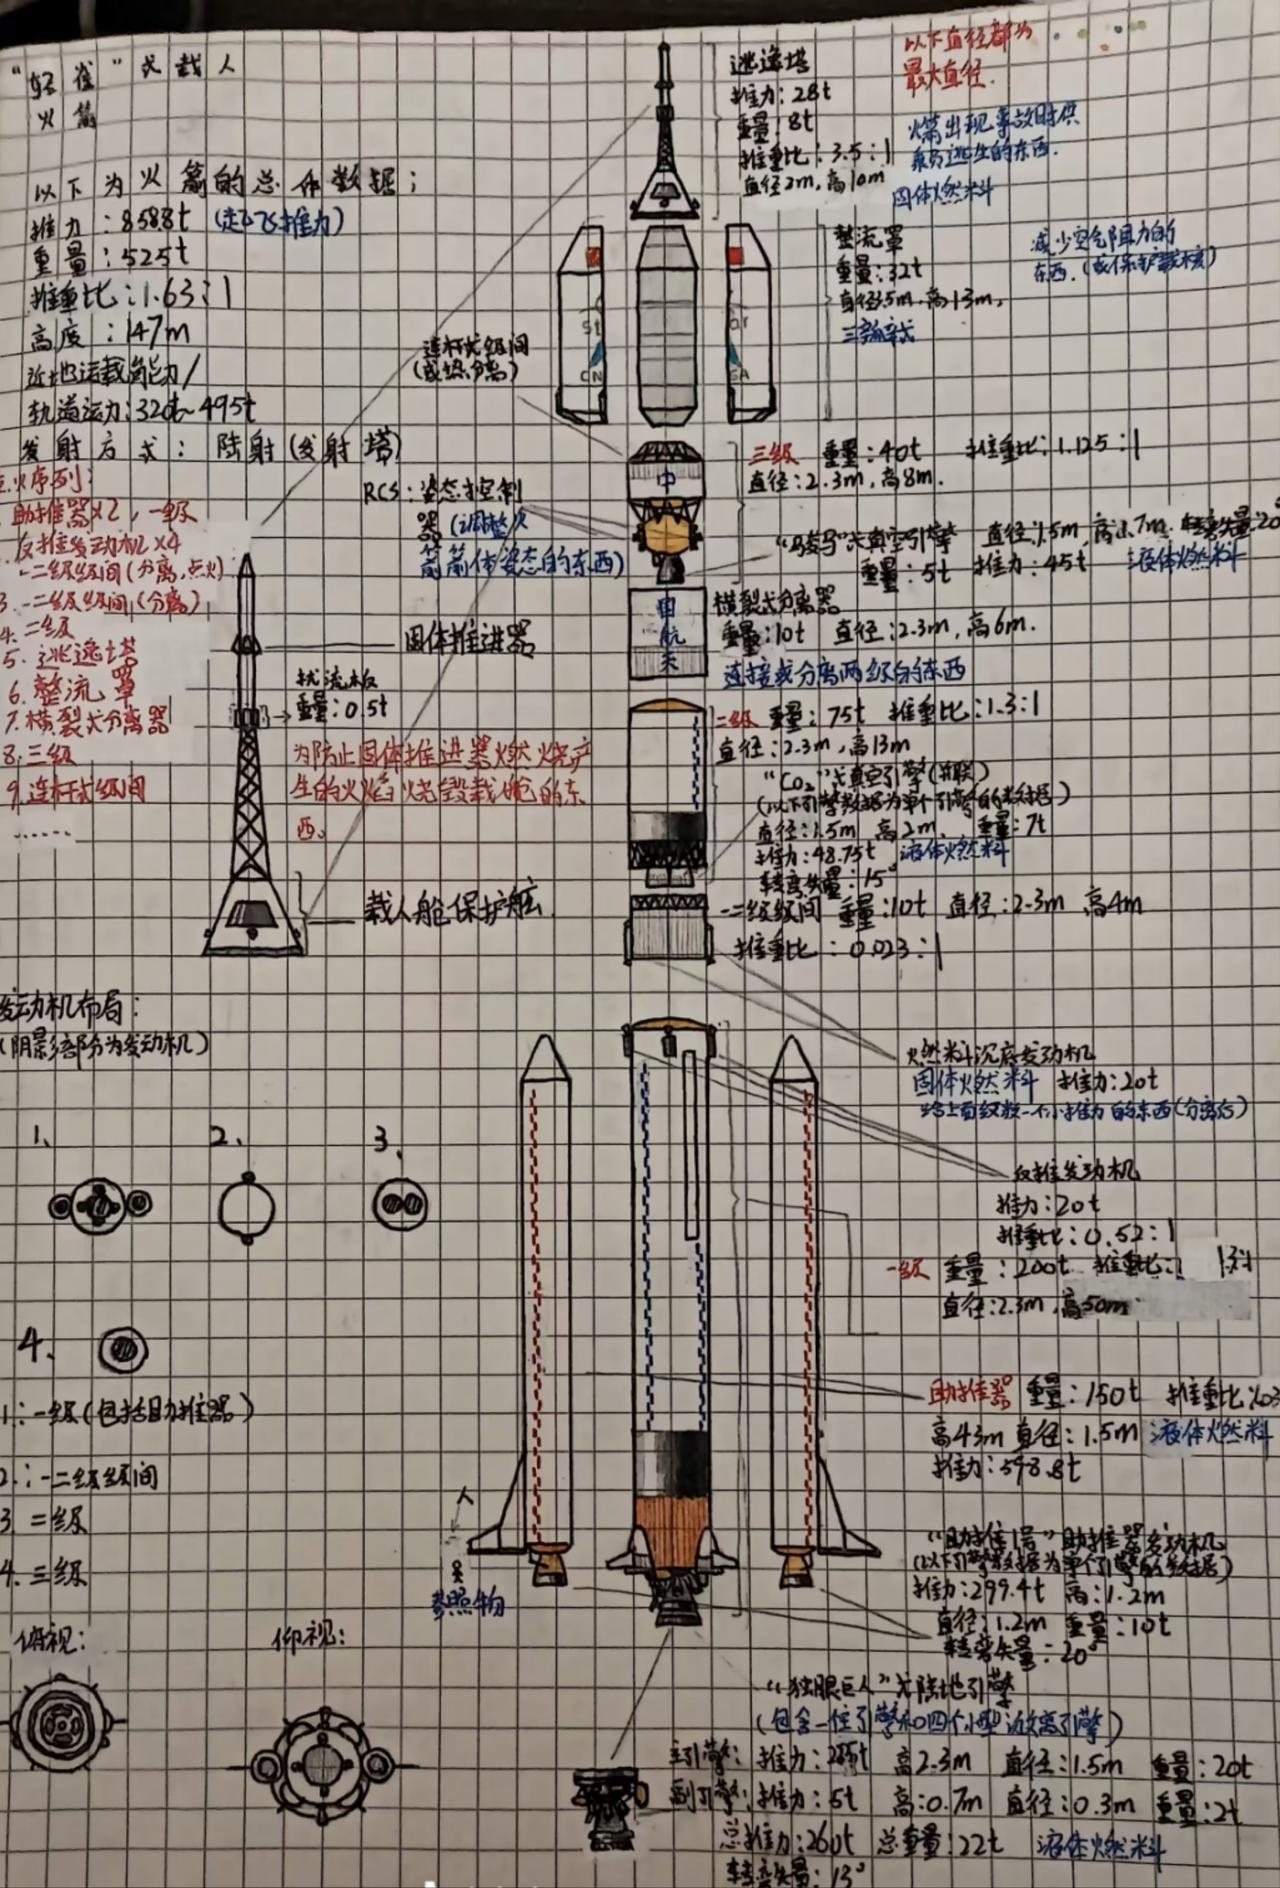 "轻雀"式载人
火箭
以下为火箭的总体数据：
推力：858.8t（起飞推力）
重量：525t
推重比：1.63：1
高度：147m
近地运载能力/
轨道运力：320t~495t
发射方式：陆射（发射塔）
火序列：
助推器×2，一级
反推发动机×4
一二级级间（分离，点火）
3.一二级级间（分离）
4.二级
5.逃逸塔
6.整流罩
7.横裂式分离器
8.三级
9.连杆式级间
……
逃逸塔
推力：28t
重量：8t
推重比：3.5：1
直径2m，高10m
以下直径都为
最大直径.
火箭出现事故时供
乘员逃生的东西.
固体燃料
整流罩
重量：32t
直径3.5m，高13m，
减少空气阻力的
东西.（或保护载核）
St
CN
or
SA
连杆式级间
（或热分离）
RCS：姿态控制
器（调整火
箭箭体姿态的东西）
三级 重量：40t 推重比：1.125：1
直径：2.3m，高8m.
中
真空引擎 直径1.5m，高1.7m
重量：5t 推力：45t 液体燃料
国
航
天
横裂式分离器
重量：10t 直径：2.3m，高6m.
连接或分离两级的东西
固体推进器
扰流板
重量：0.5t
为防止固体推进器燃烧产
生的火焰烧毁载舱的东
西。
载人舱保护舱
二级 重量：75t 推重比：1.3：1
直径：2.3m，高13m
"CO₂"式真空引擎（并联）
（以下引擎数据为单个引擎的数据）
直径：1.5m 高2m. 重量：7t
推力：48.75t 液体燃料
转弯矢量：15°
一二级级间 重量：10t 直径：2.3m 高4m
推重比：0.023：1
发动机布局：
（阴影部分为发动机）
1.
2.
3.
4.
燃料沉底发动机
固体燃料 推力：20t
给上面级提一个小推力的东西（分离后）
反推发动机
推力：20t
推重比：0.52：1
一级 重量：200t 推重比：
直径：2.3m，高50m
助推器 重量：150t 推重比
高43m 直径：1.5m 液体燃料
推力：598.8t
1：一级（包括助推器）
2.：一二级级间
3.二级
4.三级
人
参照物
"助推1号"助推器发动机
（以下引擎数据为单个引擎的数据）
推力：299.4t 高：1.2m
直径：1.2m 重量：10t
转弯矢量：20°
俯视：
仰视：
"独眼巨人"式陆地引擎
（包含一位引擎和四个小型游离引擎）
主引擎：推力： 高2.3m 直径：1.5m 重量：20t
副引擎：推力：5t 高：0.7m 直径：0.3m 重量：2t
总推力：260t 总重量：22t 液体燃料
转弯矢量：13°